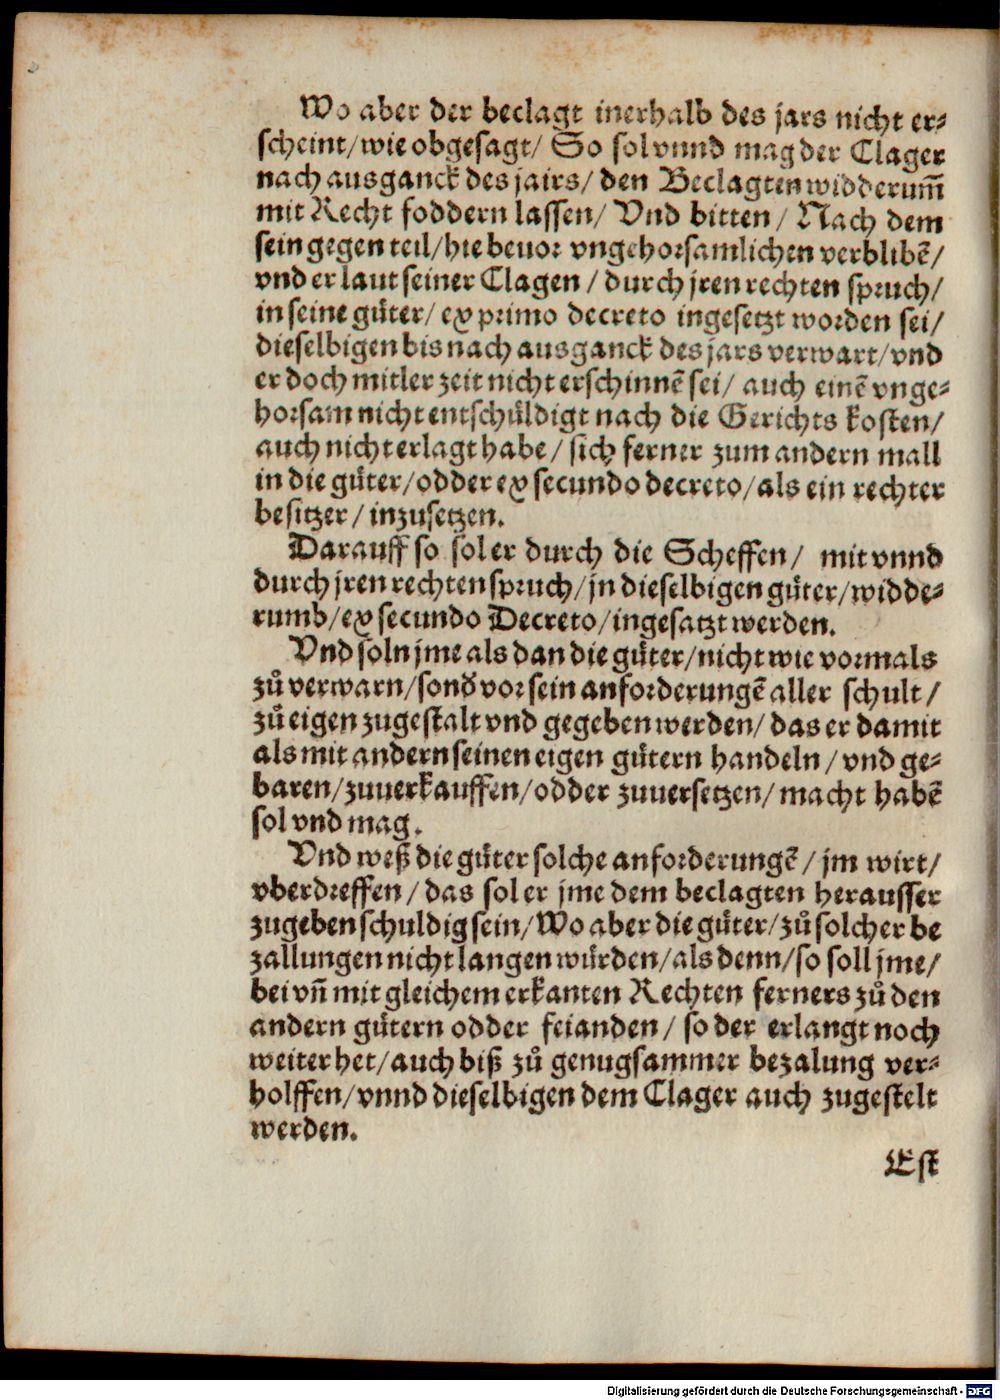 Wo aber der beclagt inerhalb des jars nicht er⸗
scheint/wie obgesagt/ So sol vnnd mag der Clager
nach ausganck des jairs/ den Beclagten widderum̄
mit Recht foddern lassen/ Vnd bitten/ Nach dem
sein gegen teil/hie beuor vngehorsamlichen verblibē/
vnd er laut seiner Clagen/ durch jren rechten spruch/
in seine gůter/ ex primo decreto ingesetzt worden sei/
dieselbigen bis nach ausganck des jars verwart/vnd
er doch mitler zeit nicht erschinnē sei/ auch einē vnge⸗
horsam nicht entschůldigt nach die Gerichts kosten/
auch nicht erlagt habe/ sich ferner zum andern mall
in die gůter/odder ex secundo decreto/als ein rechter
besitzer/ inzusetzen.
Darauff so sol er durch die Scheffen/ mit vnnd
durch jren rechten spruch/jn dieselbigen gůter/widde⸗
rumb/ex secundo Decreto/ingesatzt werden.
Vnd soln jme als dan die gůter/nicht wie vormals
zů verwarn/sonď vor sein anforderungē aller schult/
zů eigen zugestalt vnd gegeben werden/ das er damit
als mit andern seinen eigen gůtern handeln/ vnd ge⸗
baren/zuuerkauffen/odder zuuersetzen/ macht habē
sol vnd mag.
Vnd weß die gůter solche anforderungē/ jm wirt/
vberdreffen/ das sol er jme dem beclagten herausser
zugeben schuldig sein/Wo aber die gůter/zů solcher be
zallungen nicht langen wůrden/als denn/so soll jme/
bei vn̄ mit gleichem erkanten Rechten ferners zů den
andern gůtern odder feianden/ so der erlangt noch
weiter het/auch biß zů genugsammer bezalung ver⸗
holffen/vnnd dieselbigen dem Clager auch zugestelt
werden.
Est
Digitalisierung gefördert durch die Deutsche Forschungsgemeinschaft - DFG